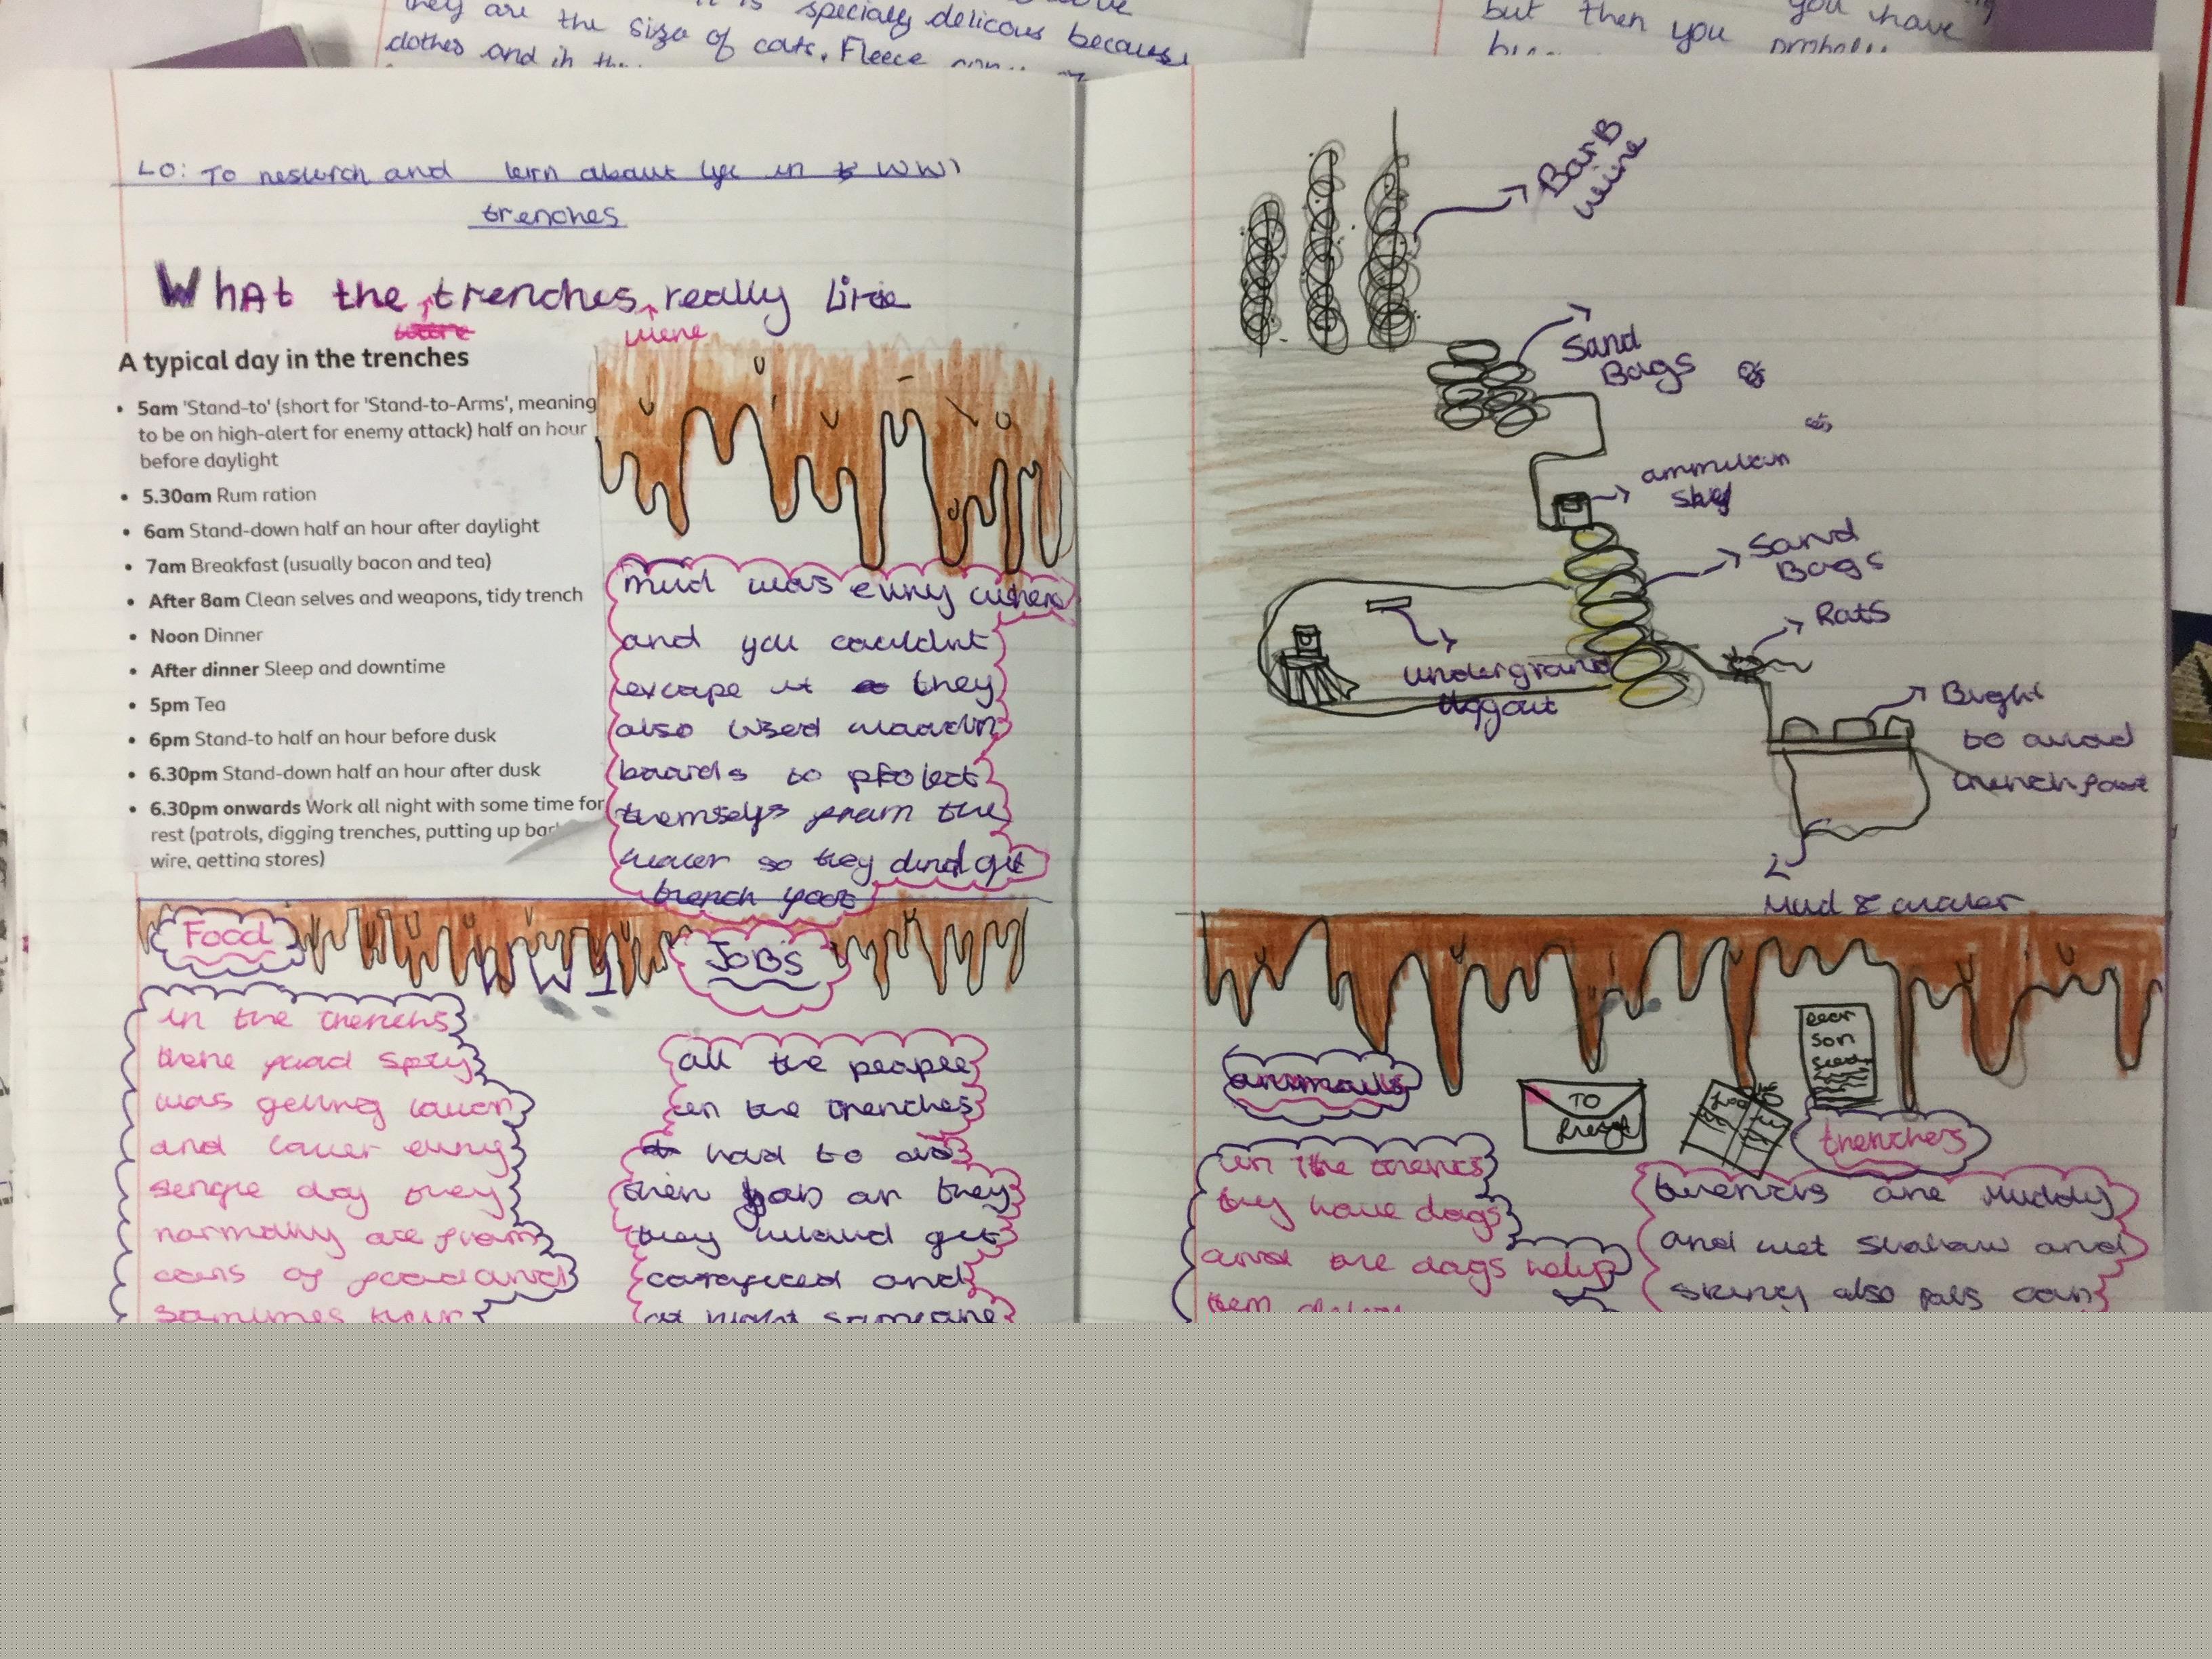 they are the size of cats. Fleece
specially delicous because
clothes and in the
but then you
you have
LO: To reserch and lern about life in WW1
trenches
What the trenches really like
were
A typical day in the trenches
• 5am 'Stand-to' (short for 'Stand-to-Arms', meaning
to be on high-alert for enemy attack) half an hour
before daylight
• 5.30am Rum ration
• 6am Stand-down half an hour after daylight
• 7am Breakfast (usually bacon and tea)
• After 8am Clean selves and weapons, tidy trench
• Noon Dinner
• After dinner Sleep and downtime
• 5pm Tea
• 6pm Stand-to half an hour before dusk
• 6.30pm Stand-down half an hour after dusk
• 6.30pm onwards Work all night with some time for
rest (patrols, digging trenches, putting up
wire, getting stores)
mud was evry where
and you couldnt
excape it they
also used
boards to protect
themselfs from the
water so they get
trench foot
Food
WW1
JOBS
in the trenchs
there food
was getting lower
and lower evry
single day they
normally ate from
cans of food and
all the people
in the trenches
had to do
their job or they
they would get
and
at night someone
BarB
wire
Sand
Bags
Sand
Bags
Rats
underground
to avoid
trench foot
Mud & water
animals
TO
Dear
son
trenches
in the
they have dogs
and the dogs help
them
are muddy
and wet and
also can